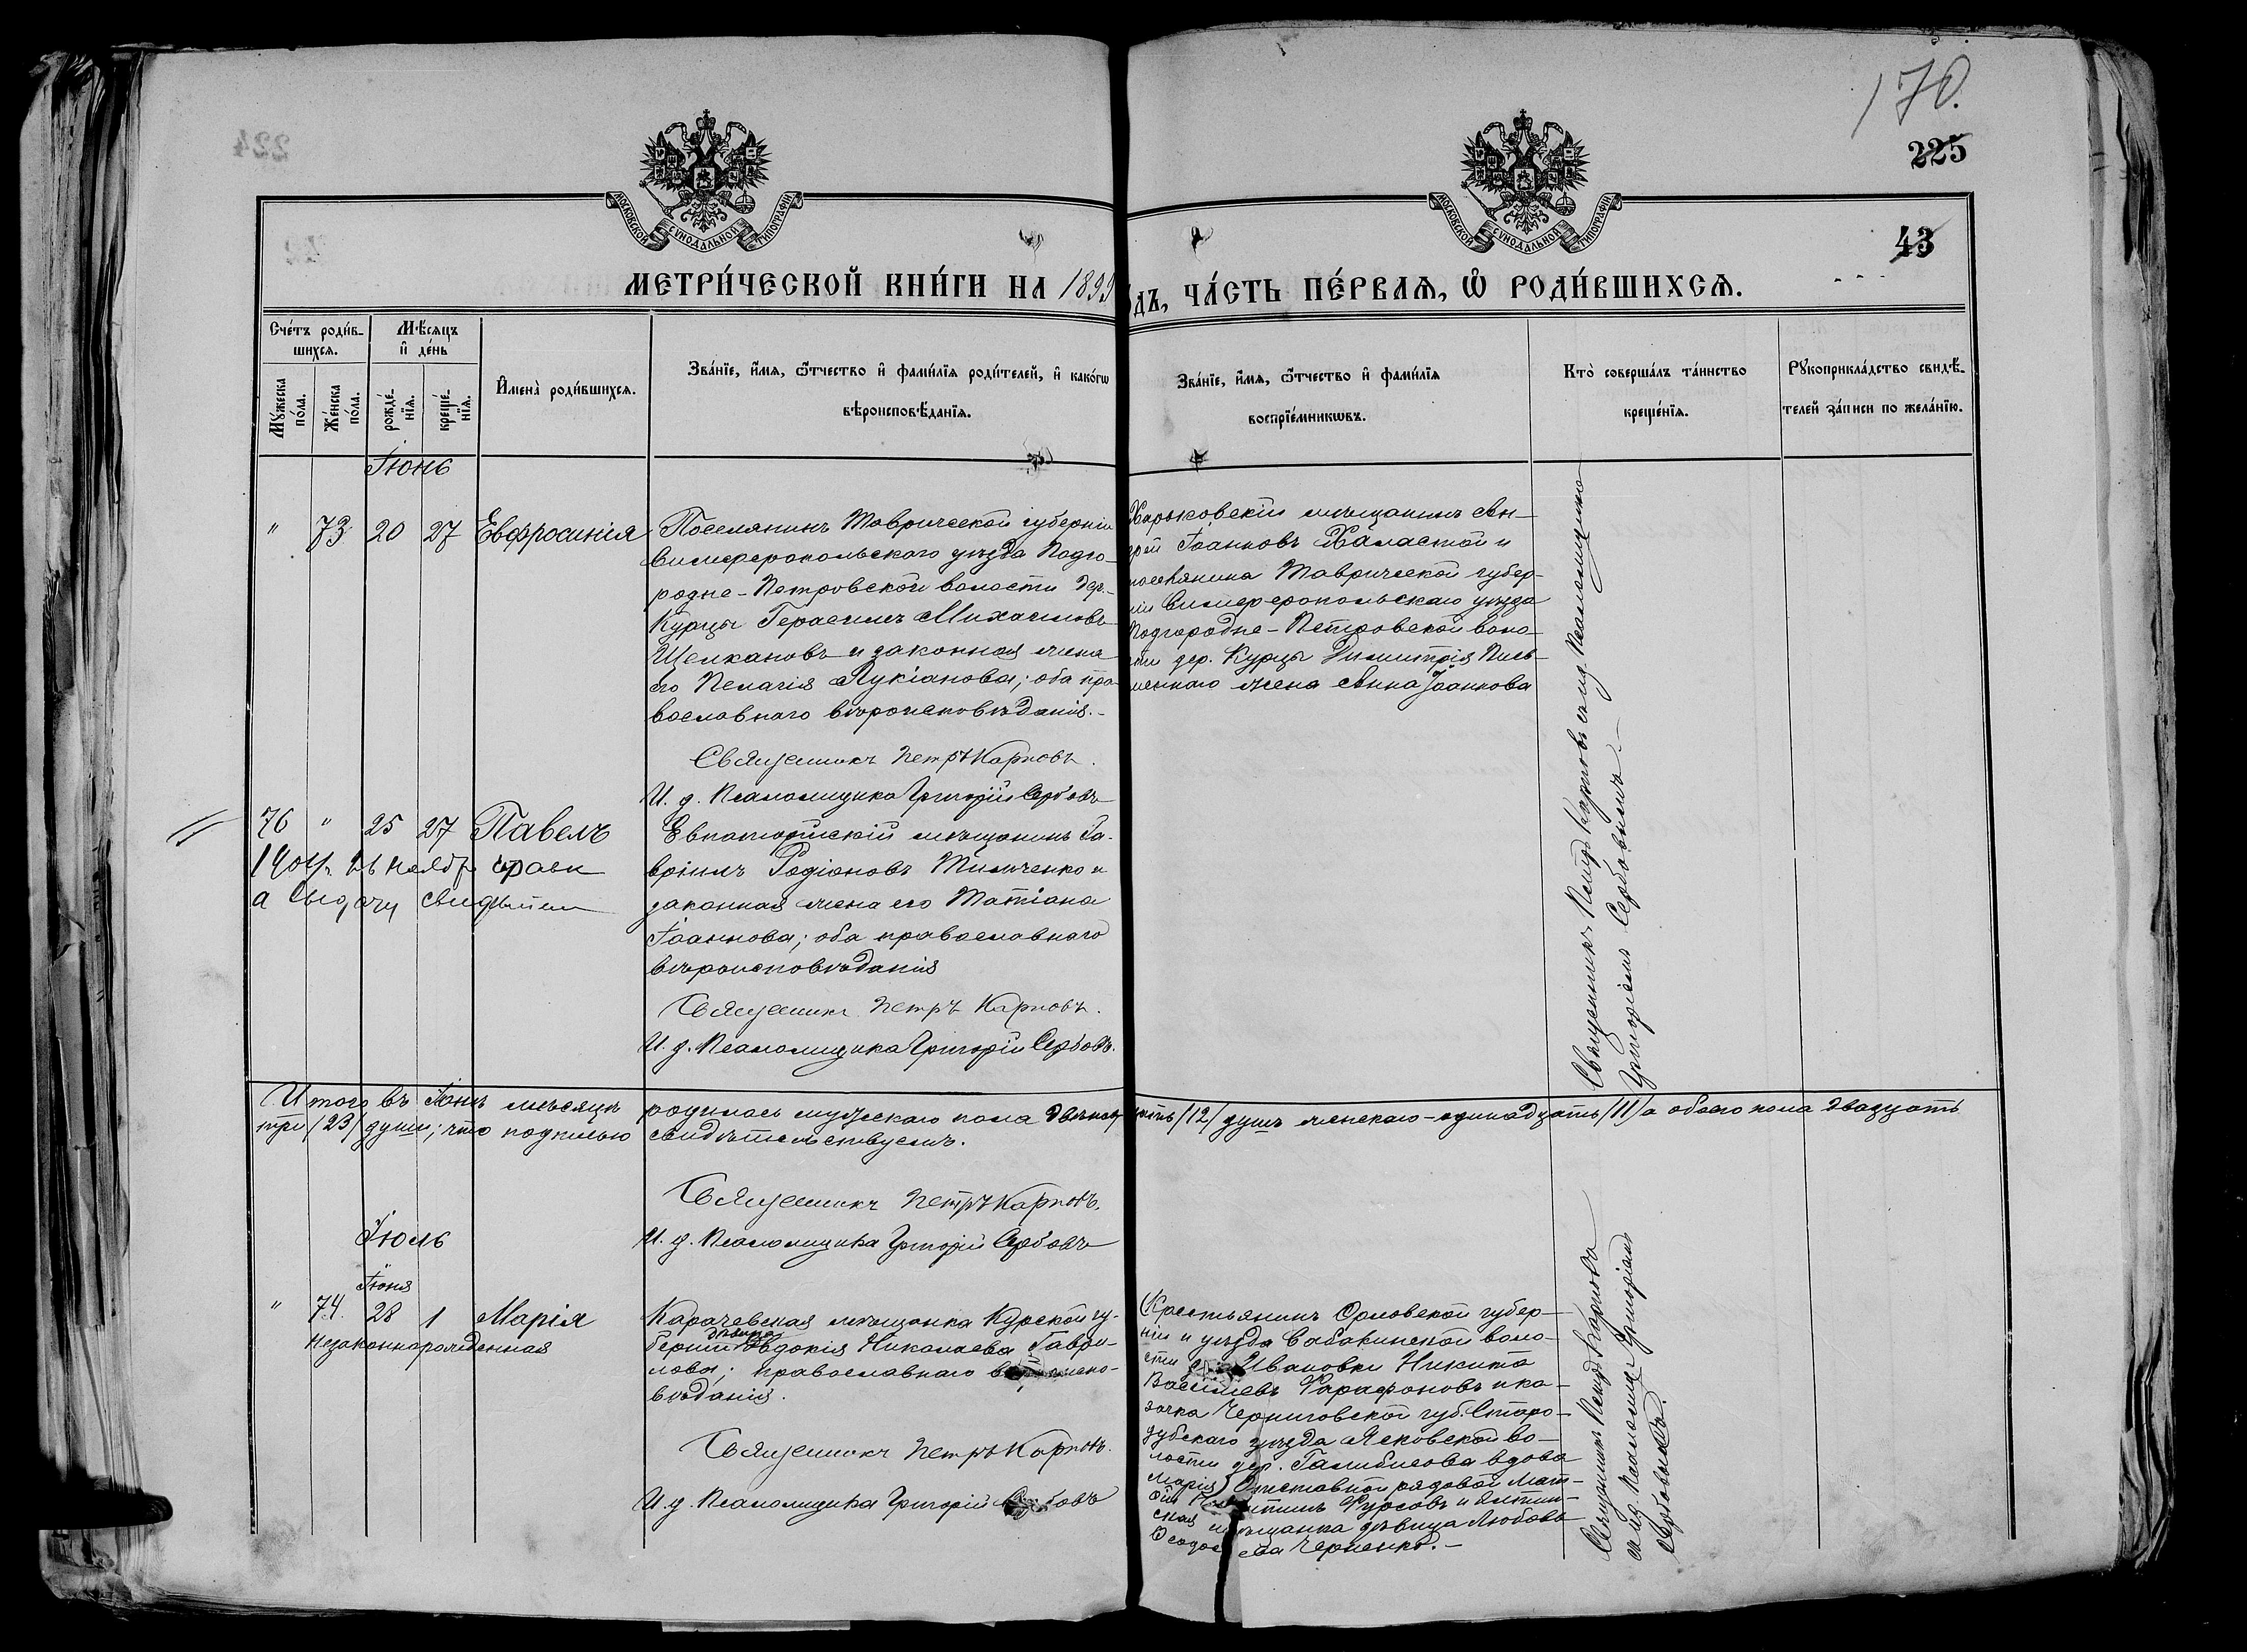 170.
225
224
43
МОСКОВСКОЙ СѴНОДАЛЬНОЙ ТИПОГРАФІИ
МОСКОВСКОЙ СѴНОДАЛЬНОЙ ТИПОГРАФІИ
МЕТРИ́ЧЕСКОЙ КНИ́ГИ НА 1899
ДЪ, ЧА́СТЬ ПЕ́РВАѦ, Ѡ҆ РОДИ́ВШИХСѦ.
Сче́тъ роди́в-
шихсѧ.
Мꙋ́жеска
по́ла.
Же́нска
по́ла.
Мѣ́сѧцъ
и҆ де́нь
рожде́-
нїѧ.
креще́-
нїѧ.
И҆мена̀ роди́вшихсѧ.
Зва́нїе, и҆́мѧ, ѻ҆́тчество и҆ фами́лїѧ роди́телей, и҆ како́гѡ
вѣроисповѣ́данїѧ.
Зва́нїе, и҆́мѧ, ѻ҆́тчество и҆ фами́лїѧ
воспрїе́мникѡвъ.
Кто̀ соверша́лъ та́инство
креще́нїѧ.
Рꙋкоприкла́дство свидѣ́-
телей за́писи по жела́нїю.
Іюнь
" 73 20 27 Евфросинія
Поселянинъ Таврической губерніи
Симферопольскаго уѣзда Подго-
родне-Петровской волости дер.
Курцы Герасимъ Михаиловъ
Щелкановъ и законная жена
его Пелагія Лукіанова; оба пра-
вославнаго вѣроисповѣданія.-
Священникъ Петръ Карповъ.
И. д. Псаломщика Григорій Сербовъ
Харьковскій мѣщанинъ Ан-
дрей Іоанновъ Халастой и
поселянина Таврической губер-
ніи Симферопольскаго уѣзда
Подгородне-Петровской воло-
сти дер. Курцы Димитрія Пись-
меннаго жена Анна Іоаннова
Священникъ Петръ Карповъ съ и.д. Псаломщика
Григоріемъ Сербовымъ.-
76 " 25 27 Павелъ
1904 г. 26 ноябр
а выдачу свидѣтел
Евпаторійскій мѣщанинъ Га-
вріилъ Родіоновъ Тимченко и
законная жена его Татіана
Іоаннова; оба православнаго
вѣроисповѣданія
Священникъ Петръ Карповъ.
И. д. Псаломщика Григорій Сербовъ.
Итого въ Іюнѣ мѣсяцѣ родилось мужескаго пола двѣнадцать /12/ душъ женскаго-одинадцать /11/ а обоего пола двадцать
три /23/ души; что подписью свидѣтельствуемъ.
Священникъ Петръ Карповъ.
И. д. Псаломщика Григорій Сербовъ
Іюль
Іюня
" 74. 28 1 Марія
Незаконнорожденная
Карачевская мѣщанка Курской гу-
берніи дѣвица Евдокія Николаева Гаври-
лова; православнаго вѣроиспо-
вѣданія.
Священникъ Петръ Карповъ.
И. д. Псаломщика Григорій Сербовъ
Крестьянинъ Орловской губер-
ніи и уѣзда Сабакинской воло-
сти Ивановки Никита
Васильевъ Фарафоновъ и ка-
зачка Черниговской губ. Старо-
дубскаго уѣзда Лсковской во-
лости дер. вдова
Марія Отставной рядовой Мат-
Фурсовъ и Ялтин-
ская мѣщанка дѣвица Любовь
Ѳеодосіева Черненко.-
Священникъ Петръ Карповъ
съ и.д. Псаломщ. Григоріемъ
Сербовымъ.